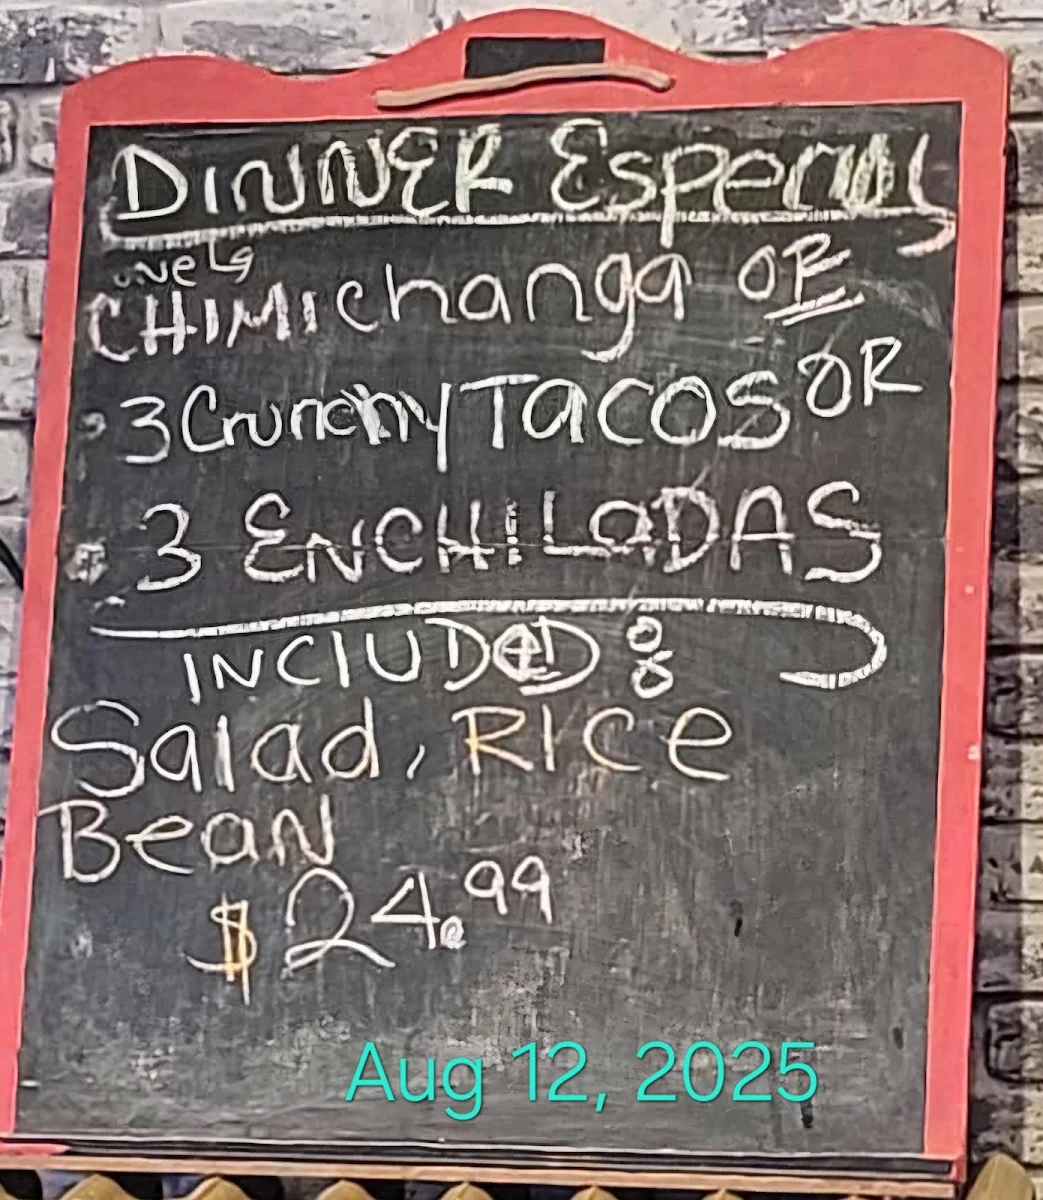 DINNER Especial
CHIMIchanga OR
3 Crunchy TACOS OR
3 ENCHILADAS
INCLUDED:
Salad, RICE
Bean
$24.99
Aug 12, 2025